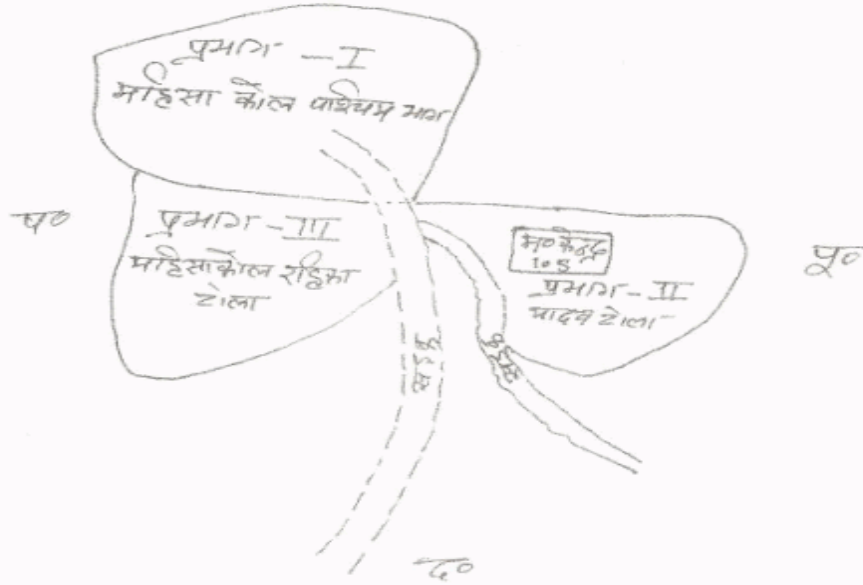 प्रभाग - I
महिसा कोल पश्चिम भाग
प०
प्रभाग - III
महिसाकोल राईका
टोला
म० केन्द्र
105
प्रभाग - II
यादव टोला
पू०
सड़क
सड़क
द०